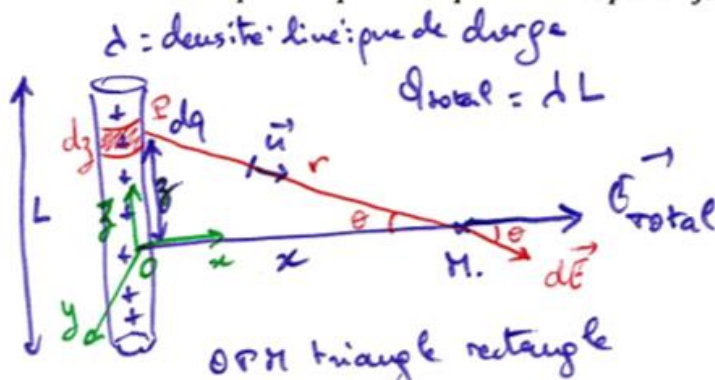 λ = densité linéique de charge
Qtotal = λ L
P
dq
dz
u⃗
r
L
z
z
θ
E⃗total
O
x
x
M.
θ
dE⃗
y
OPM triangle rectangle